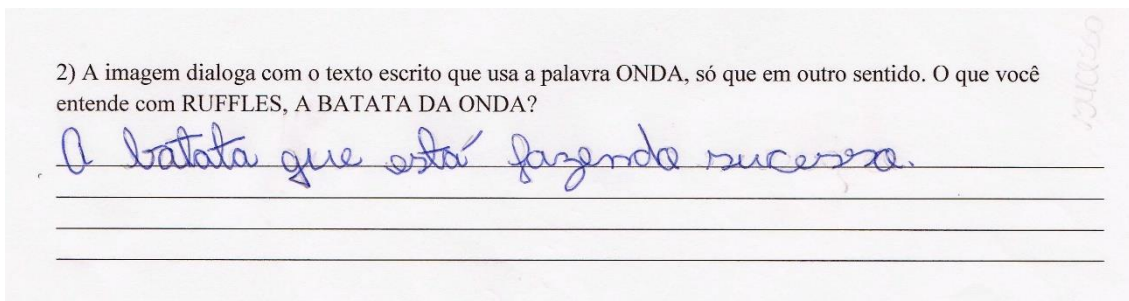 2) A imagem dialoga com o texto escrito que usa a palavra ONDA, só que em outro sentido. O que você
entende com RUFFLES, A BATATA DA ONDA?
A batata que está fazendo sucesso.
sucesso